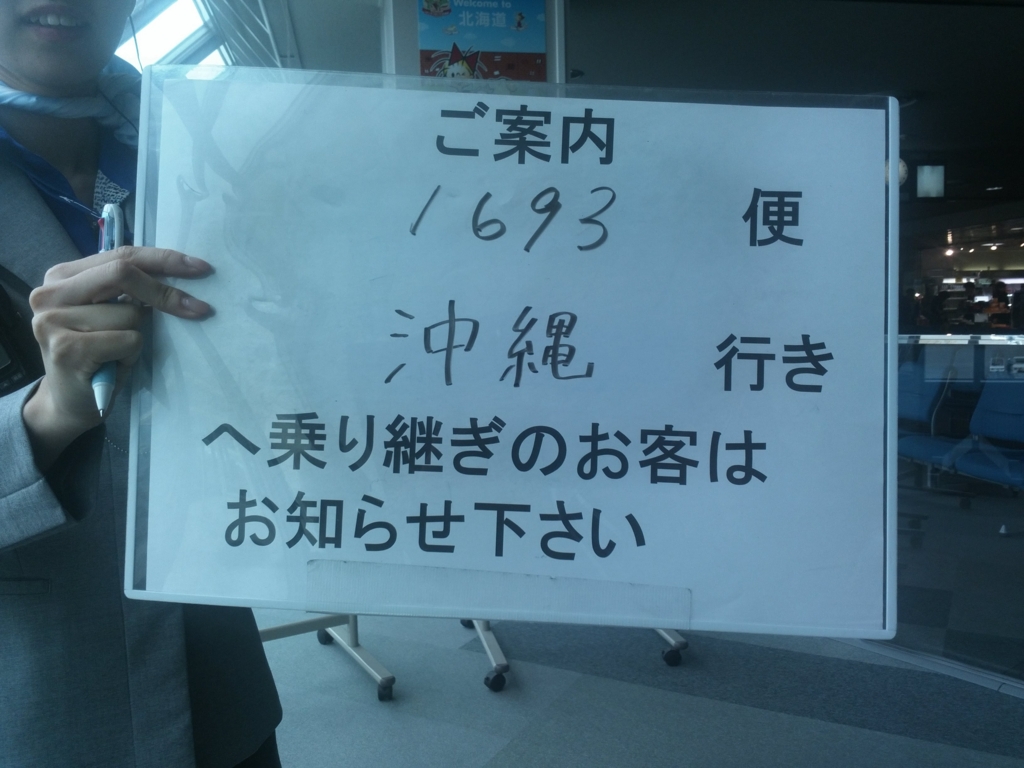 Welcome to
北海道
ご案内
1693 便
沖縄 行き
へ乗り継ぎのお客は
お知らせ下さい